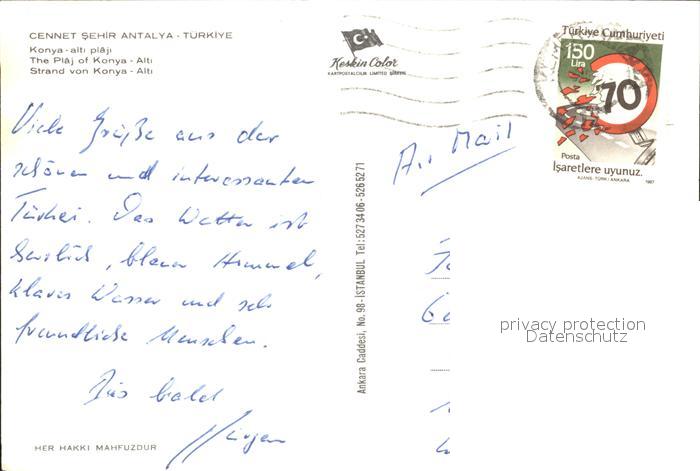 CENNET ŞEHİR ANTALYA - TÜRKİYE
Konya-altı plâjı
The Plâj of Konya-Altı
Strand von Konya-Altı
Keskin Color
KARTPOSTALCILIK LIMITED ŞİRKETİ
Türkiye Cumhuriyeti
150
Lira
70
Posta
İşaretlere uyunuz.
AJANS-TÜRK/ANKARA 1987
Viele Grüße aus der
schönen und interessanten
Türkei. Das Wetter ist
herrlich, blauer Himmel,
klares Wasser und sehr
freundliche Menschen.
Bis bald
Jürgen
Air Mail
Ankara Caddesi, No. 98-İSTANBUL Tel: 5273406-5265271
privacy protection
Datenschutz
HER HAKKI MAHFUZDUR